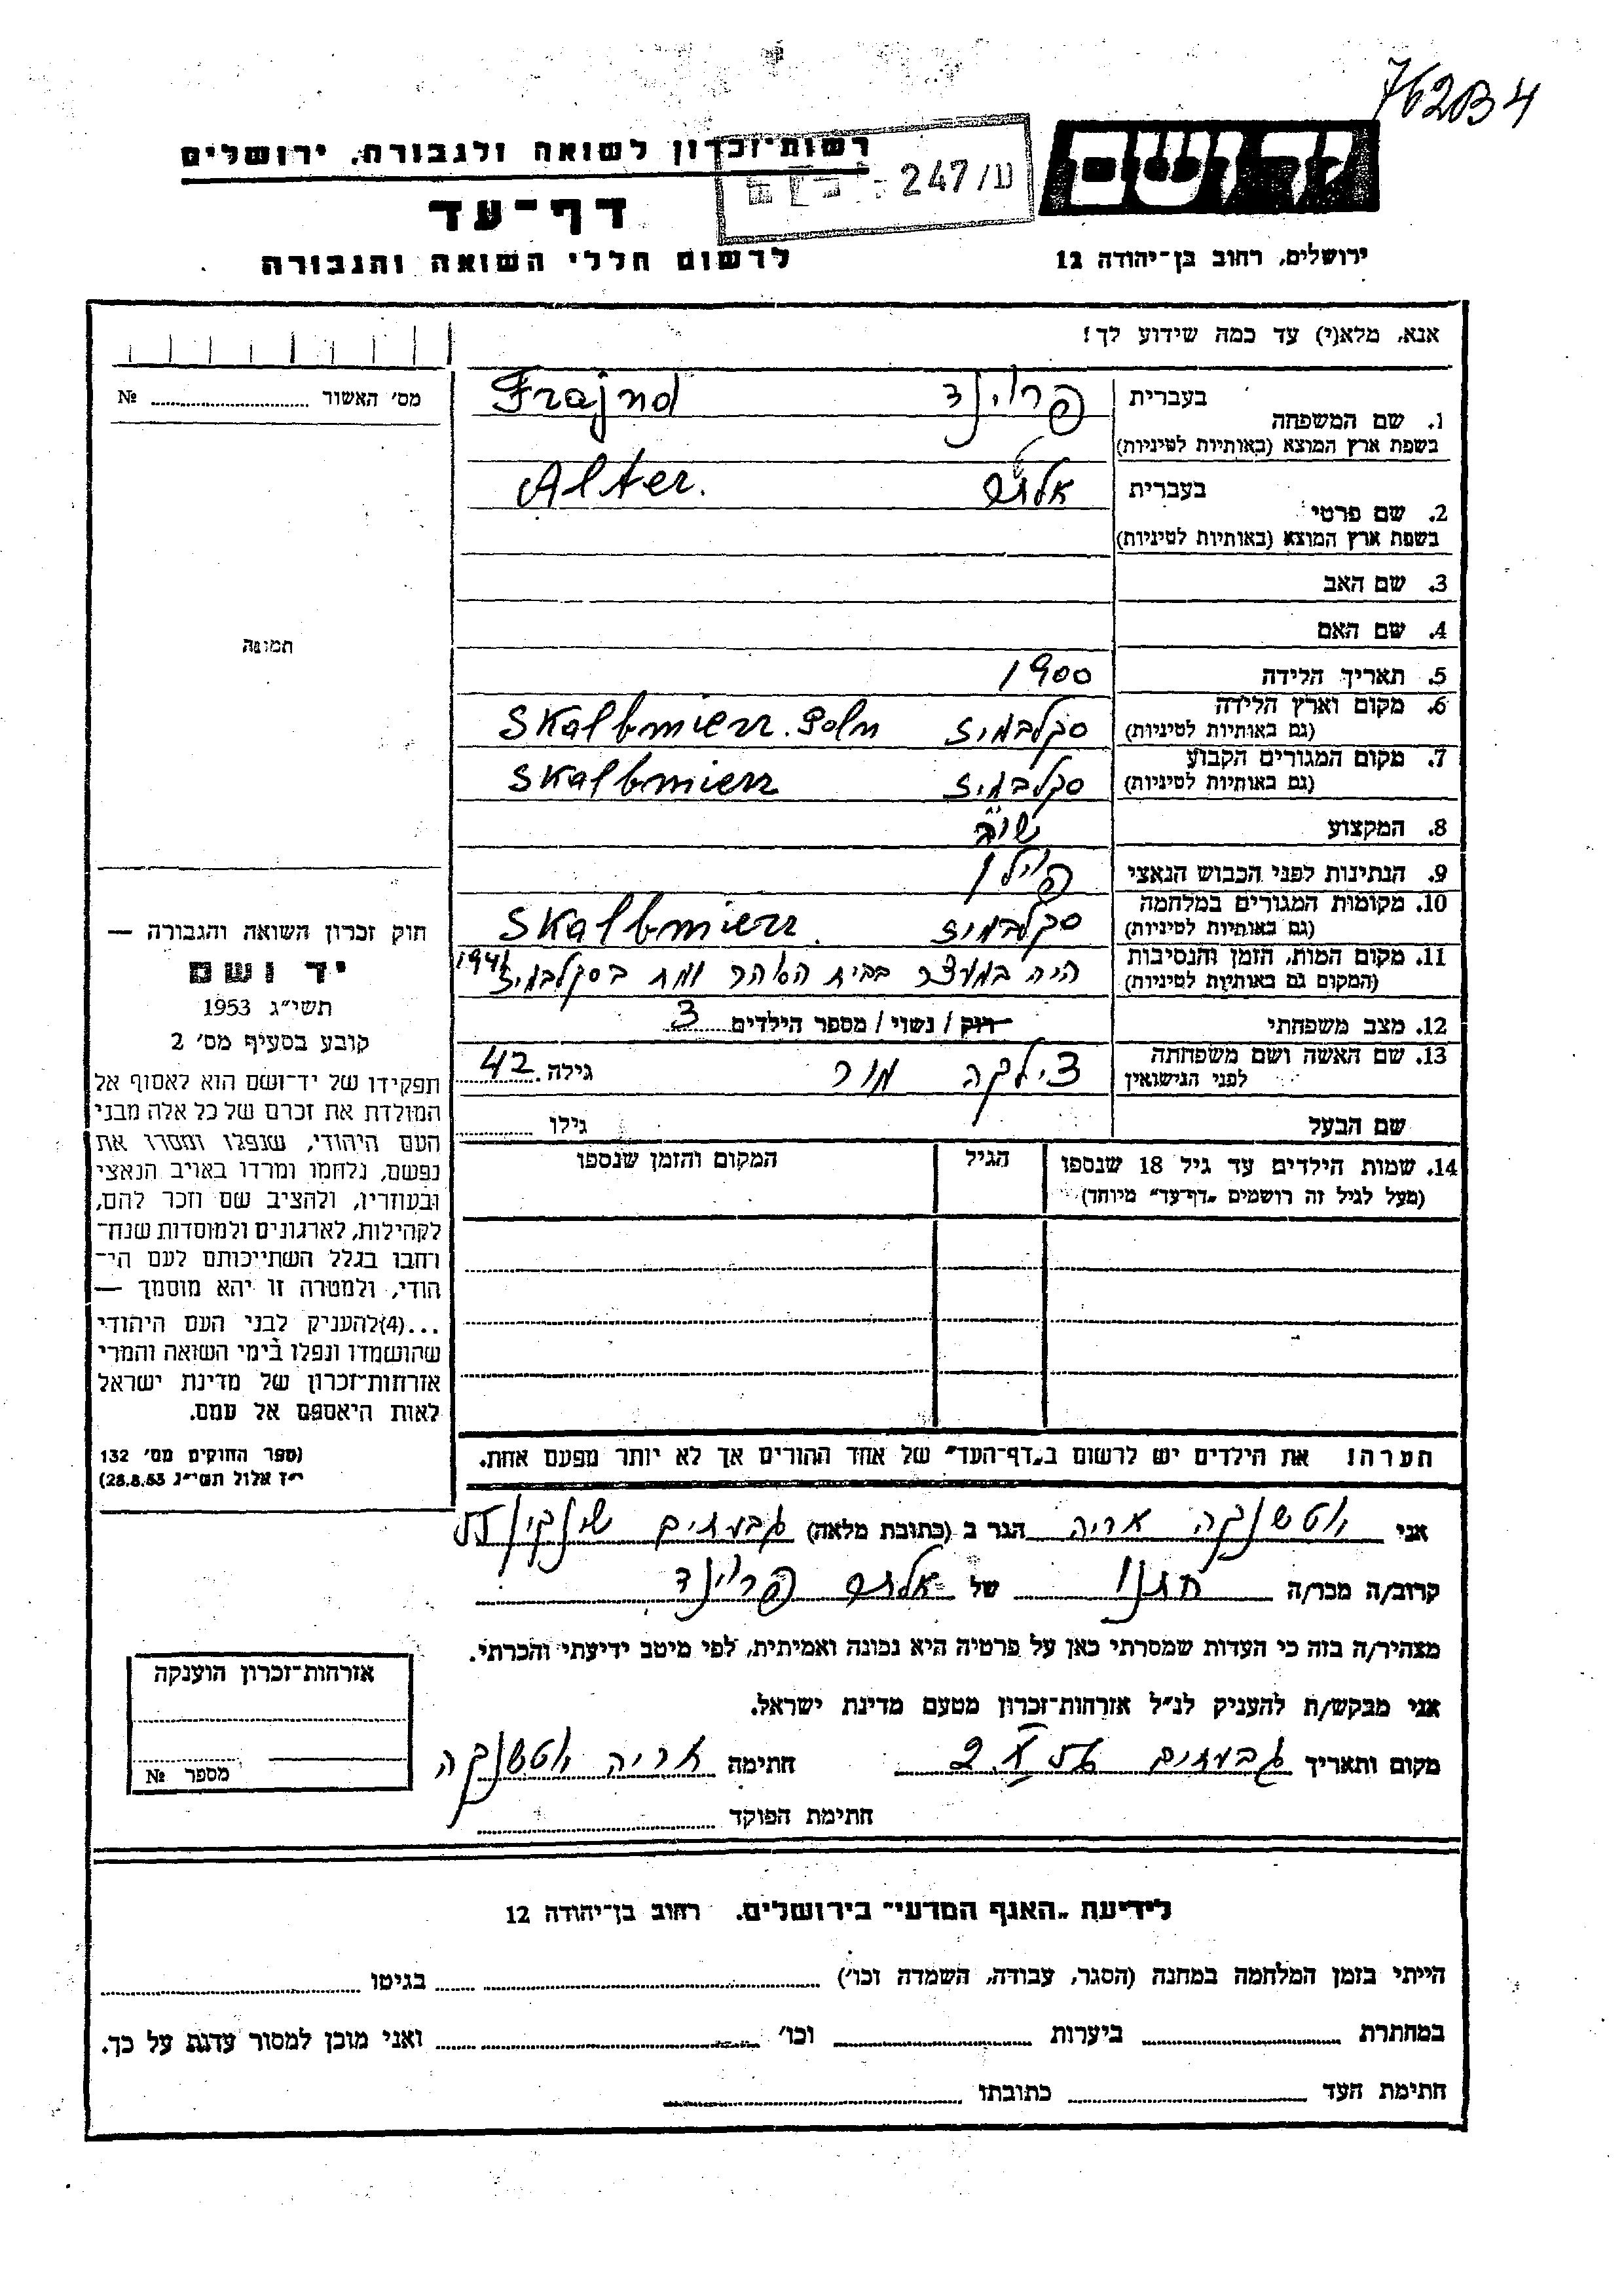 76284
רשות-זכרון לשואה ולגבורה, ירושלים
247/ע
יד ושם
דף-עד
לרשום חללי השואה והגבורה
ירושלים, רחוב בן-יהודה 12
אנא, מלא(י) עד כמה שידוע לך!
מס׳ האשור № 
1. שם המשפחה
בעברית פריינד Frajnd
בשפת ארץ המוצא (באותיות לטיניות)
2. שם פרטי
בעברית אלתר Alter.
בשפת ארץ המוצא (באותיות לטיניות)
3. שם האב
4. שם האם
תמונה
5. תאריך הלידה 1900
6. מקום וארץ הלידה סקלבמיז Skalbmierz. Poln
(גם באותיות לטיניות)
7. מקום המגורים הקבוע סקלבמיז Skalbmierz
(גם באותיות לטיניות)
8. המקצוע שו"ב
9. הנתינות לפני הכבוש הנאצי פוילן
10. מקומות המגורים במלחמה סקלבמיז Skalbmierz.
(גם באותיות לטיניות)
11. מקום המות, הזמן והנסיבות היה במעצר בבית הסוהר ומת בסקלבמיז
(המקום גם באותיות לטיניות)
12. מצב משפחתי רוק / נשוי / מספר הילדים 3
13. שם האשה ושם משפחתה צילקה מור גילה 42
לפני הנישואין
שם הבעל גילו
14. שמות הילדים עד גיל 18 שנספו הגיל המקום והזמן שנספו
(מעל לגיל זה רושמים „דף-עד״ מיוחד)
הערה! את הילדים יש לרשום ב„דף-העד״ של אחד ההורים אך לא יותר מפעם אחת.
חוק זכרון השואה והגבורה —
יד ושם
תשי״ג 1953
קובע בסעיף מס׳ 2
תפקידו של יד-ושם הוא לאסוף אל
המולדת את זכרם של כל אלה מבני
העם היהודי, שנפלו ומסרו את
נפשם, נלחמו ומרדו באויב הנאצי
ובעוזריו, ולהציב שם וזכר להם,
לקהילות, לארגונים ולמוסדות שנח-
רחבו בגלל השתייכותם לעם הי-
הודי, ולמטרה זו יהא מוסמך —
...(4)להעניק לבני העם היהודי
שהושמדו ונפלו בימי השואה והמרי
אזרחות-זכרון של מדינת ישראל
לאות היאספם אל עמם.
(ספר החוקים מס׳ 132
י״ז אלול תשי״ג 28.8.53)
אני וטשנקה אריה הגר ב (כתובת מלאה) גבעתים
קרוב/ה מכר/ה חתנו של אלתר פריינד
מצהיר/ה בזה כי העדות שמסרתי כאן על פרטיה היא נכונה ואמיתית, לפי מיטב ידיעתי והכרתי.
אני מבקש/ת להעניק לנ״ל אזרחות-זכרון מטעם מדינת ישראל.
מקום ותאריך גבעתים חתימה אריה וטשנקה
חתימת הפוקד
אזרחות-זכרון הוענקה
מספר №
לידיעת „האגף המדעי״ בירושלים. רחוב בן-יהודה 12
הייתי בזמן המלחמה במחנה (הסגר, עבודה, השמדה וכו׳) בגיטו
במחתרת ביערות וכו׳ ואני מוכן למסור עדות על כך.
חתימת העד כתובתו